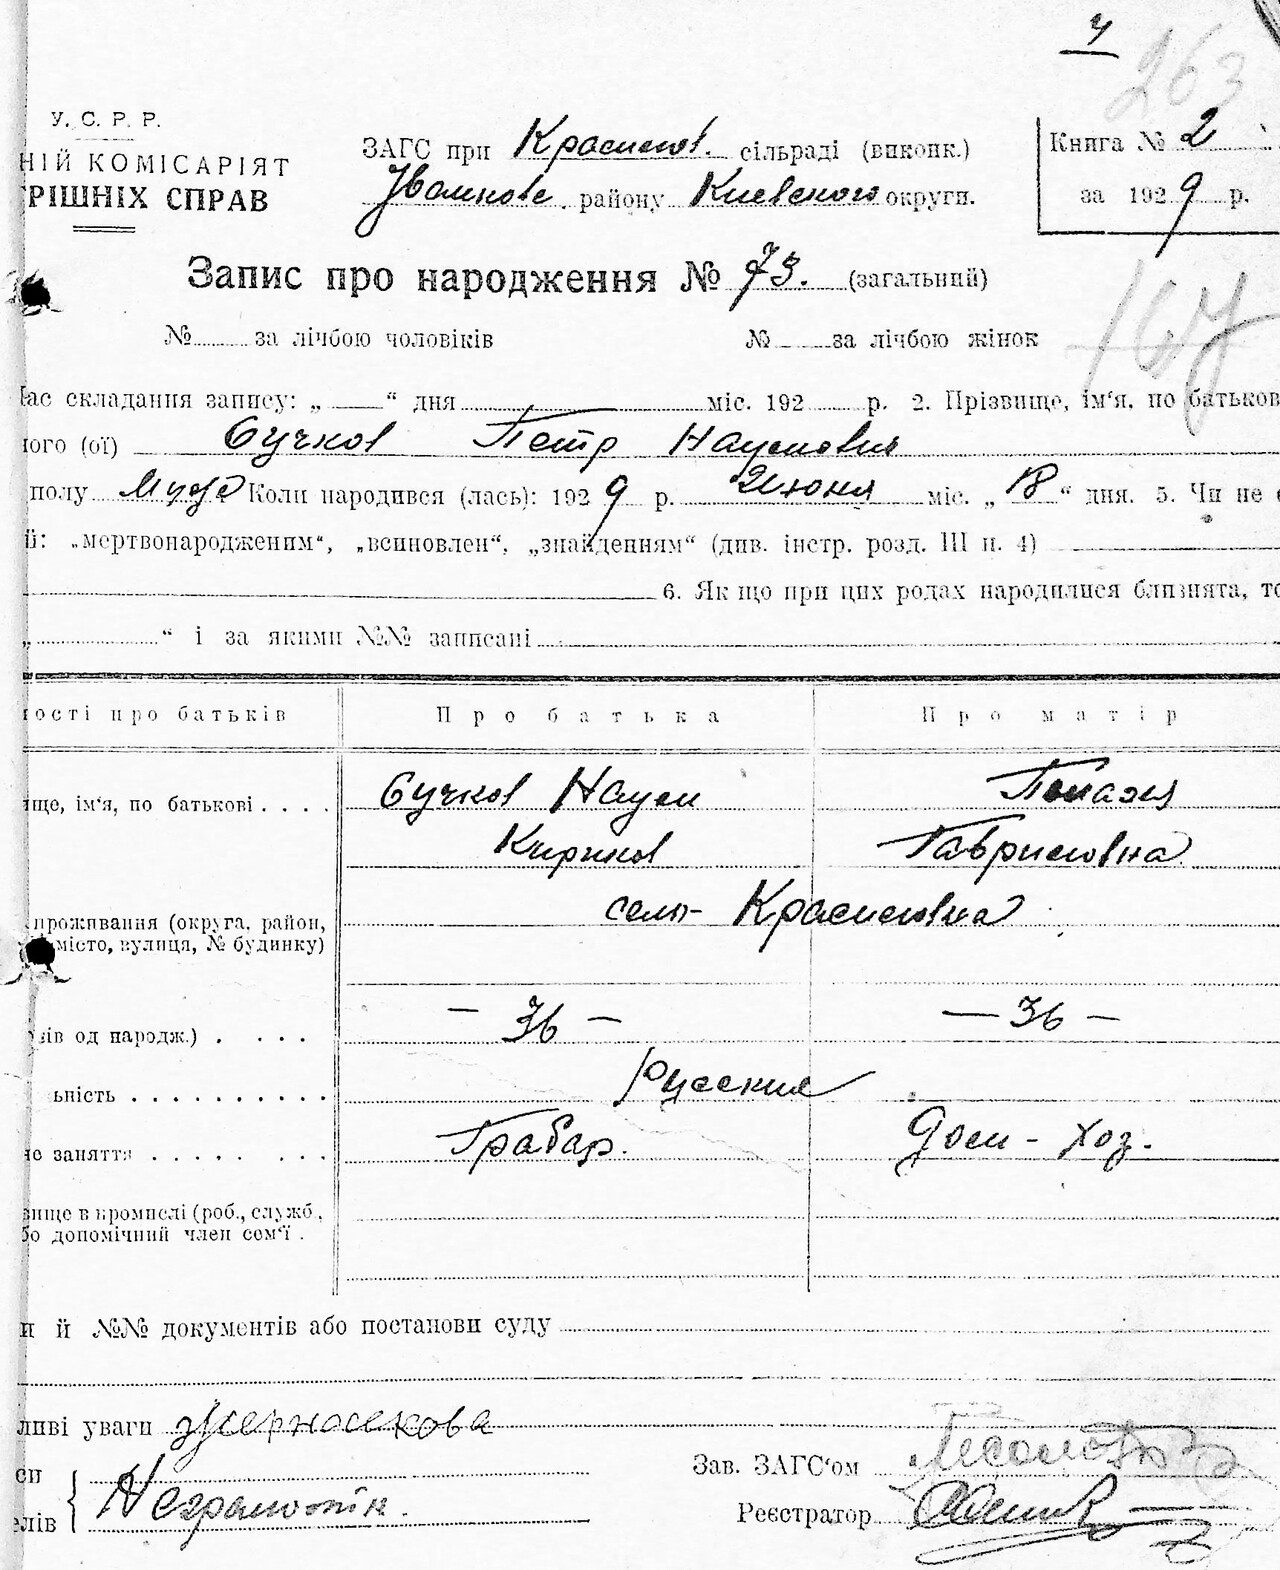 4
263
У. С. Р. Р.
НІЙ КОМІСАРІЯТ
РІШНІХ СПРАВ
ЗАГС при Красилов. сільраді (виконк.)
Іванкове. району Киевского округи.
Книга № 2
за 1929 р.
Запис про народження № 73. (загальний)
167
№ за лічбою чоловіків № за лічбою жінок
час складання запису: „ “ дня міс. 192 р. 2. Прізвище, ім‘я, по батькові
ного (ої) Сучков Петр Наумович
полу Муж Коли народився (лась): 1929 р. Июня міс. „ 18 “ дня. 5. Чи не є
й: „мертвонародженим“, „всиновлен“, „знайденням“ (див. інстр. розд. III п. 4)
6. Як що при цих родах народилися близнята, то
„ “ і за якими №№ записані
ості про батьків Про батька Про матір
ище, ім‘я, по батькові . . . . Сучков Наум
Кирилов Гавриловна
село - Красиловка
проживання (округа, район,
місто, вулиця, № будинку)
ів од народж.) . . . . — 36 — — 36 —
ьність . . . . . . . . . . Русские
не заняття . . . . . . . . Грабар. Дом - хоз.
вище в промислі (роб., служб.,
бо допомічний член сем‘ї .
и й №№ документів або постанови суду
ливі уваги
си
елів Неграмотн.
Зав. ЗАГС‘ом
Реєстратор